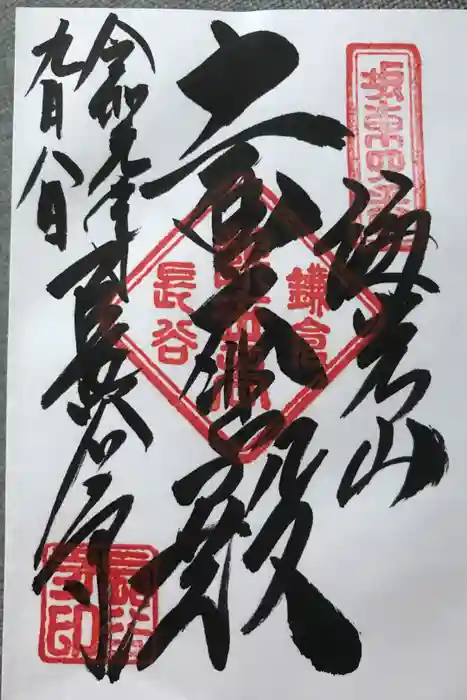 坂東四番
海光山
十一面大悲殿
鎌倉
長谷
令和元年
九月八日
長谷寺
長谷寺印